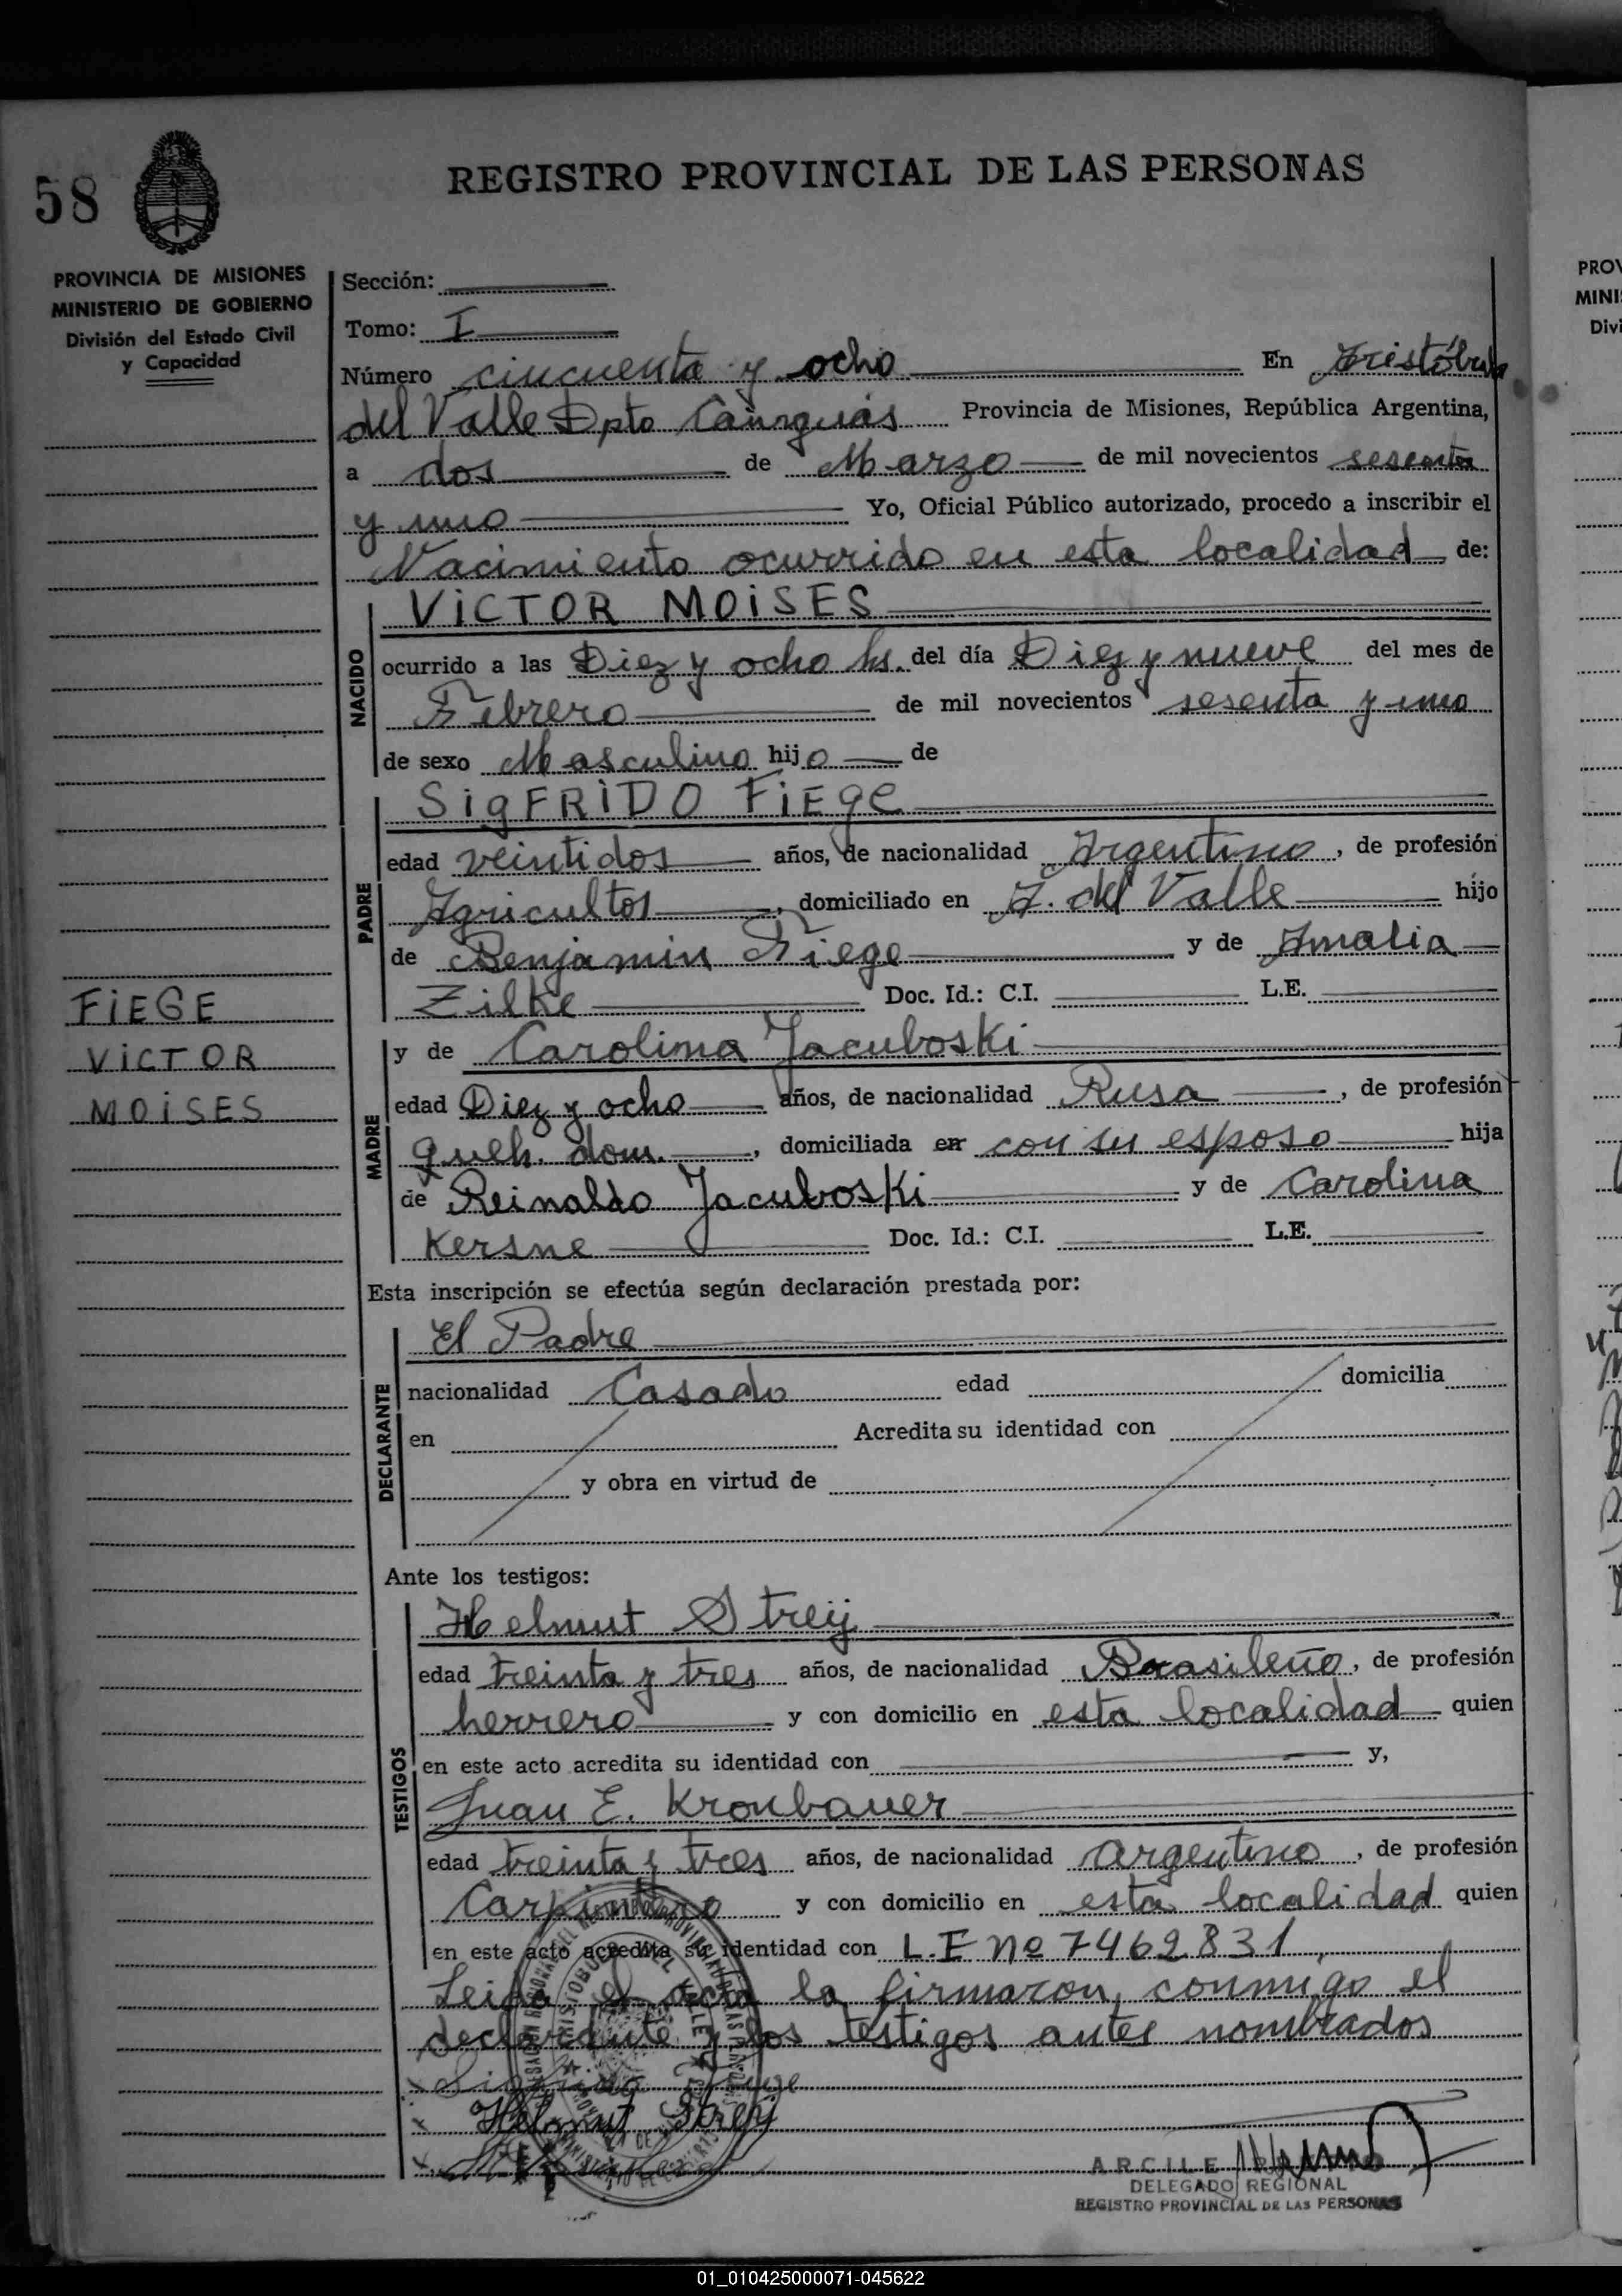 58
REGISTRO PROVINCIAL DE LAS PERSONAS
PROVINCIA DE MISIONES
MINISTERIO DE GOBIERNO
División del Estado Civil
y Capacidad
FIEGE
VICTOR
MOISES
Sección:
Tomo: I
Número cincuenta y ocho En Aristóbulo
del Valle Dpto Cainguás Provincia de Misiones, República Argentina,
a dos de Marzo de mil novecientos sesenta
y uno Yo, Oficial Público autorizado, procedo a inscribir el
Nacimiento ocurrido en esta localidad de:
NACIDO
VICTOR MOISES
ocurrido a las Diez y ocho hs. del día Diez y nueve del mes de
Febrero de mil novecientos sesenta y uno
de sexo Masculino hijo de
PADRE
SIGFRIDO FIEGE
edad veintidos años, de nacionalidad Argentino, de profesión
Agricultor, domiciliado en A. del Valle hijo
de Benjamin Fiege y de Amalia
Zilke Doc. Id.: C.I. L.E.
MADRE
y de Carolina Jacuboski
edad Diez y ocho años, de nacionalidad Rusa, de profesión
queh. dom., domiciliada en con su esposo hija
de Reinaldo Jacuboski y de Carolina
Kersne Doc. Id.: C.I. L.E.
Esta inscripción se efectúa según declaración prestada por:
DECLARANTE
El Padre
nacionalidad Casado edad domicilia
en Acredita su identidad con
y obra en virtud de
Ante los testigos:
TESTIGOS
Helmut Streij
edad treinta y tres años, de nacionalidad Brasileño, de profesión
herrero y con domicilio en esta localidad quien
en este acto acredita su identidad con y,
Juan E. Kronbauer
edad treinta y tres años, de nacionalidad argentino, de profesión
Carpintero y con domicilio en esta localidad quien
en este acto acredita su identidad con L.E nº 7462831
Leida el acta la firmaron, conmigo el
declarante y los testigos antes nombrados
Sigfrido Fiege
Helmut Streij
ARCILE
DELEGADO REGIONAL
REGISTRO PROVINCIAL DE LAS PERSONAS
PROV
MINI
Divi
01_010425000071-045622